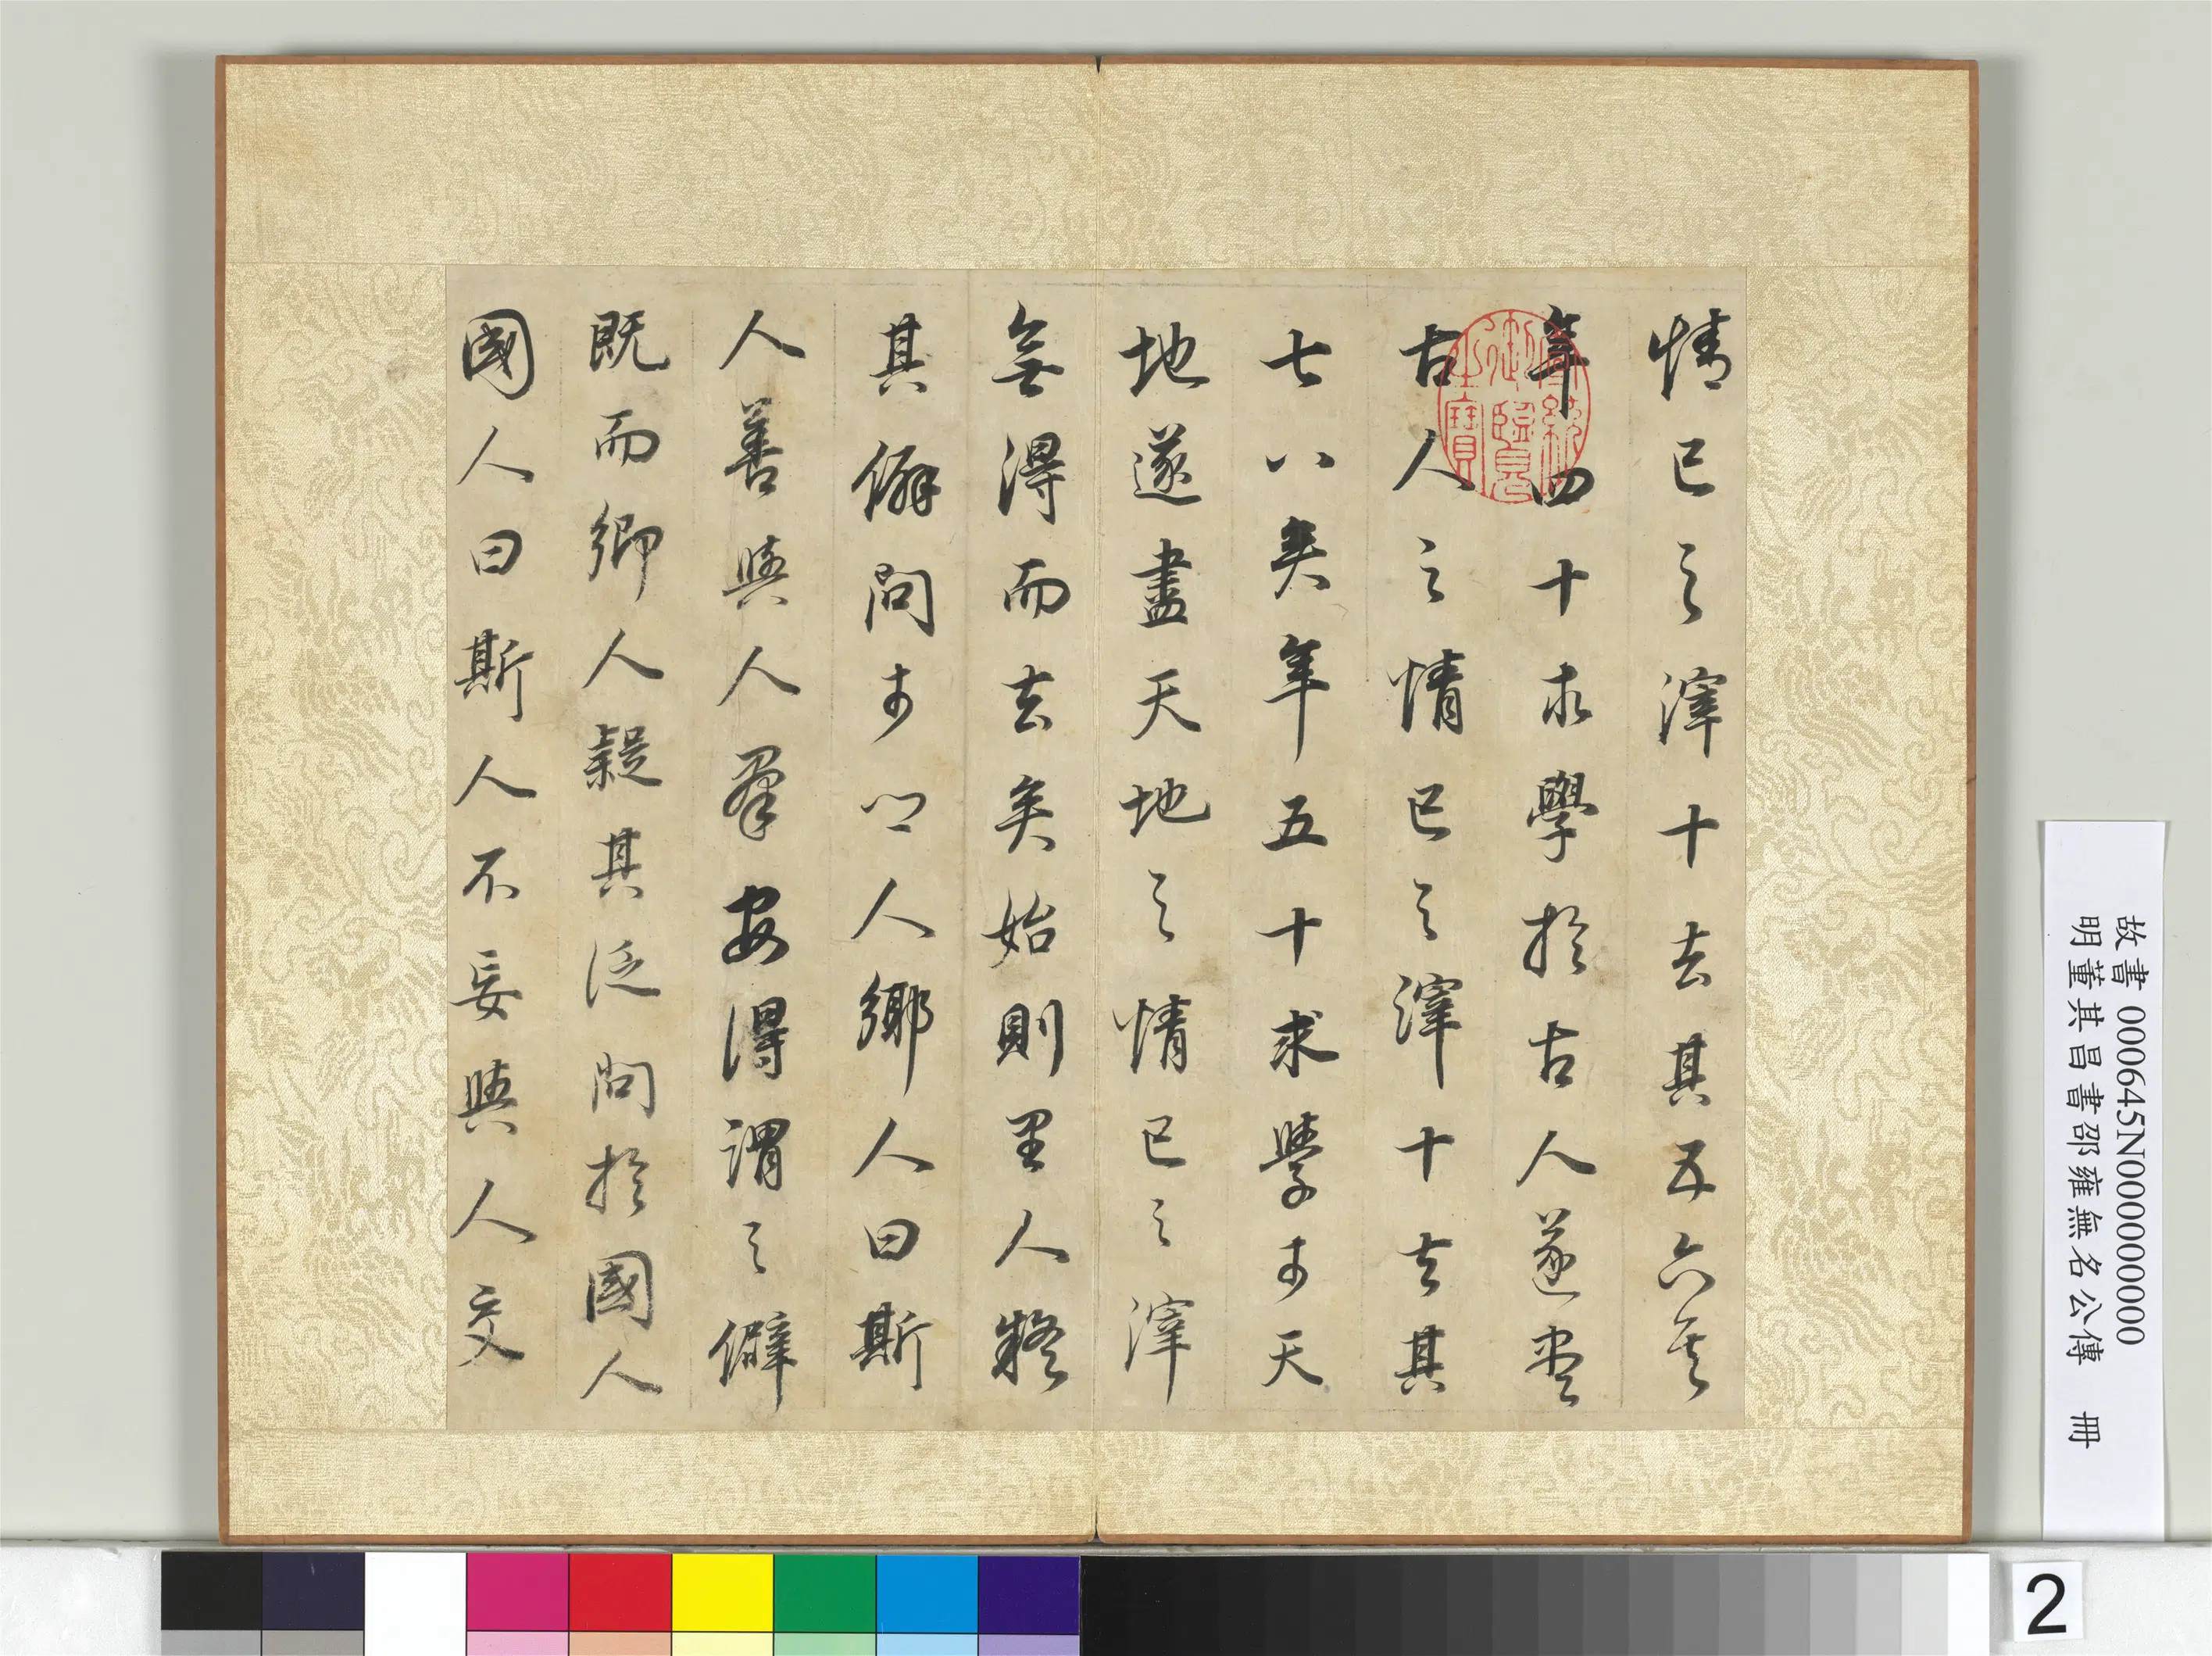 情已之滓十去其五六矣
年四十求學於古人遂盡
古人之情已之滓十去其
七八矣年五十求學于天
地遂盡天地之情已之滓
無得而去矣始則里人疑
其僻問于鄉人鄉人曰斯
人善與人群安得謂之僻
既而鄉人疑其泛問於國人
國人曰斯人不妄與人交
故書 000645N000000000
明董其昌書邵雍無名公傳 冊
2